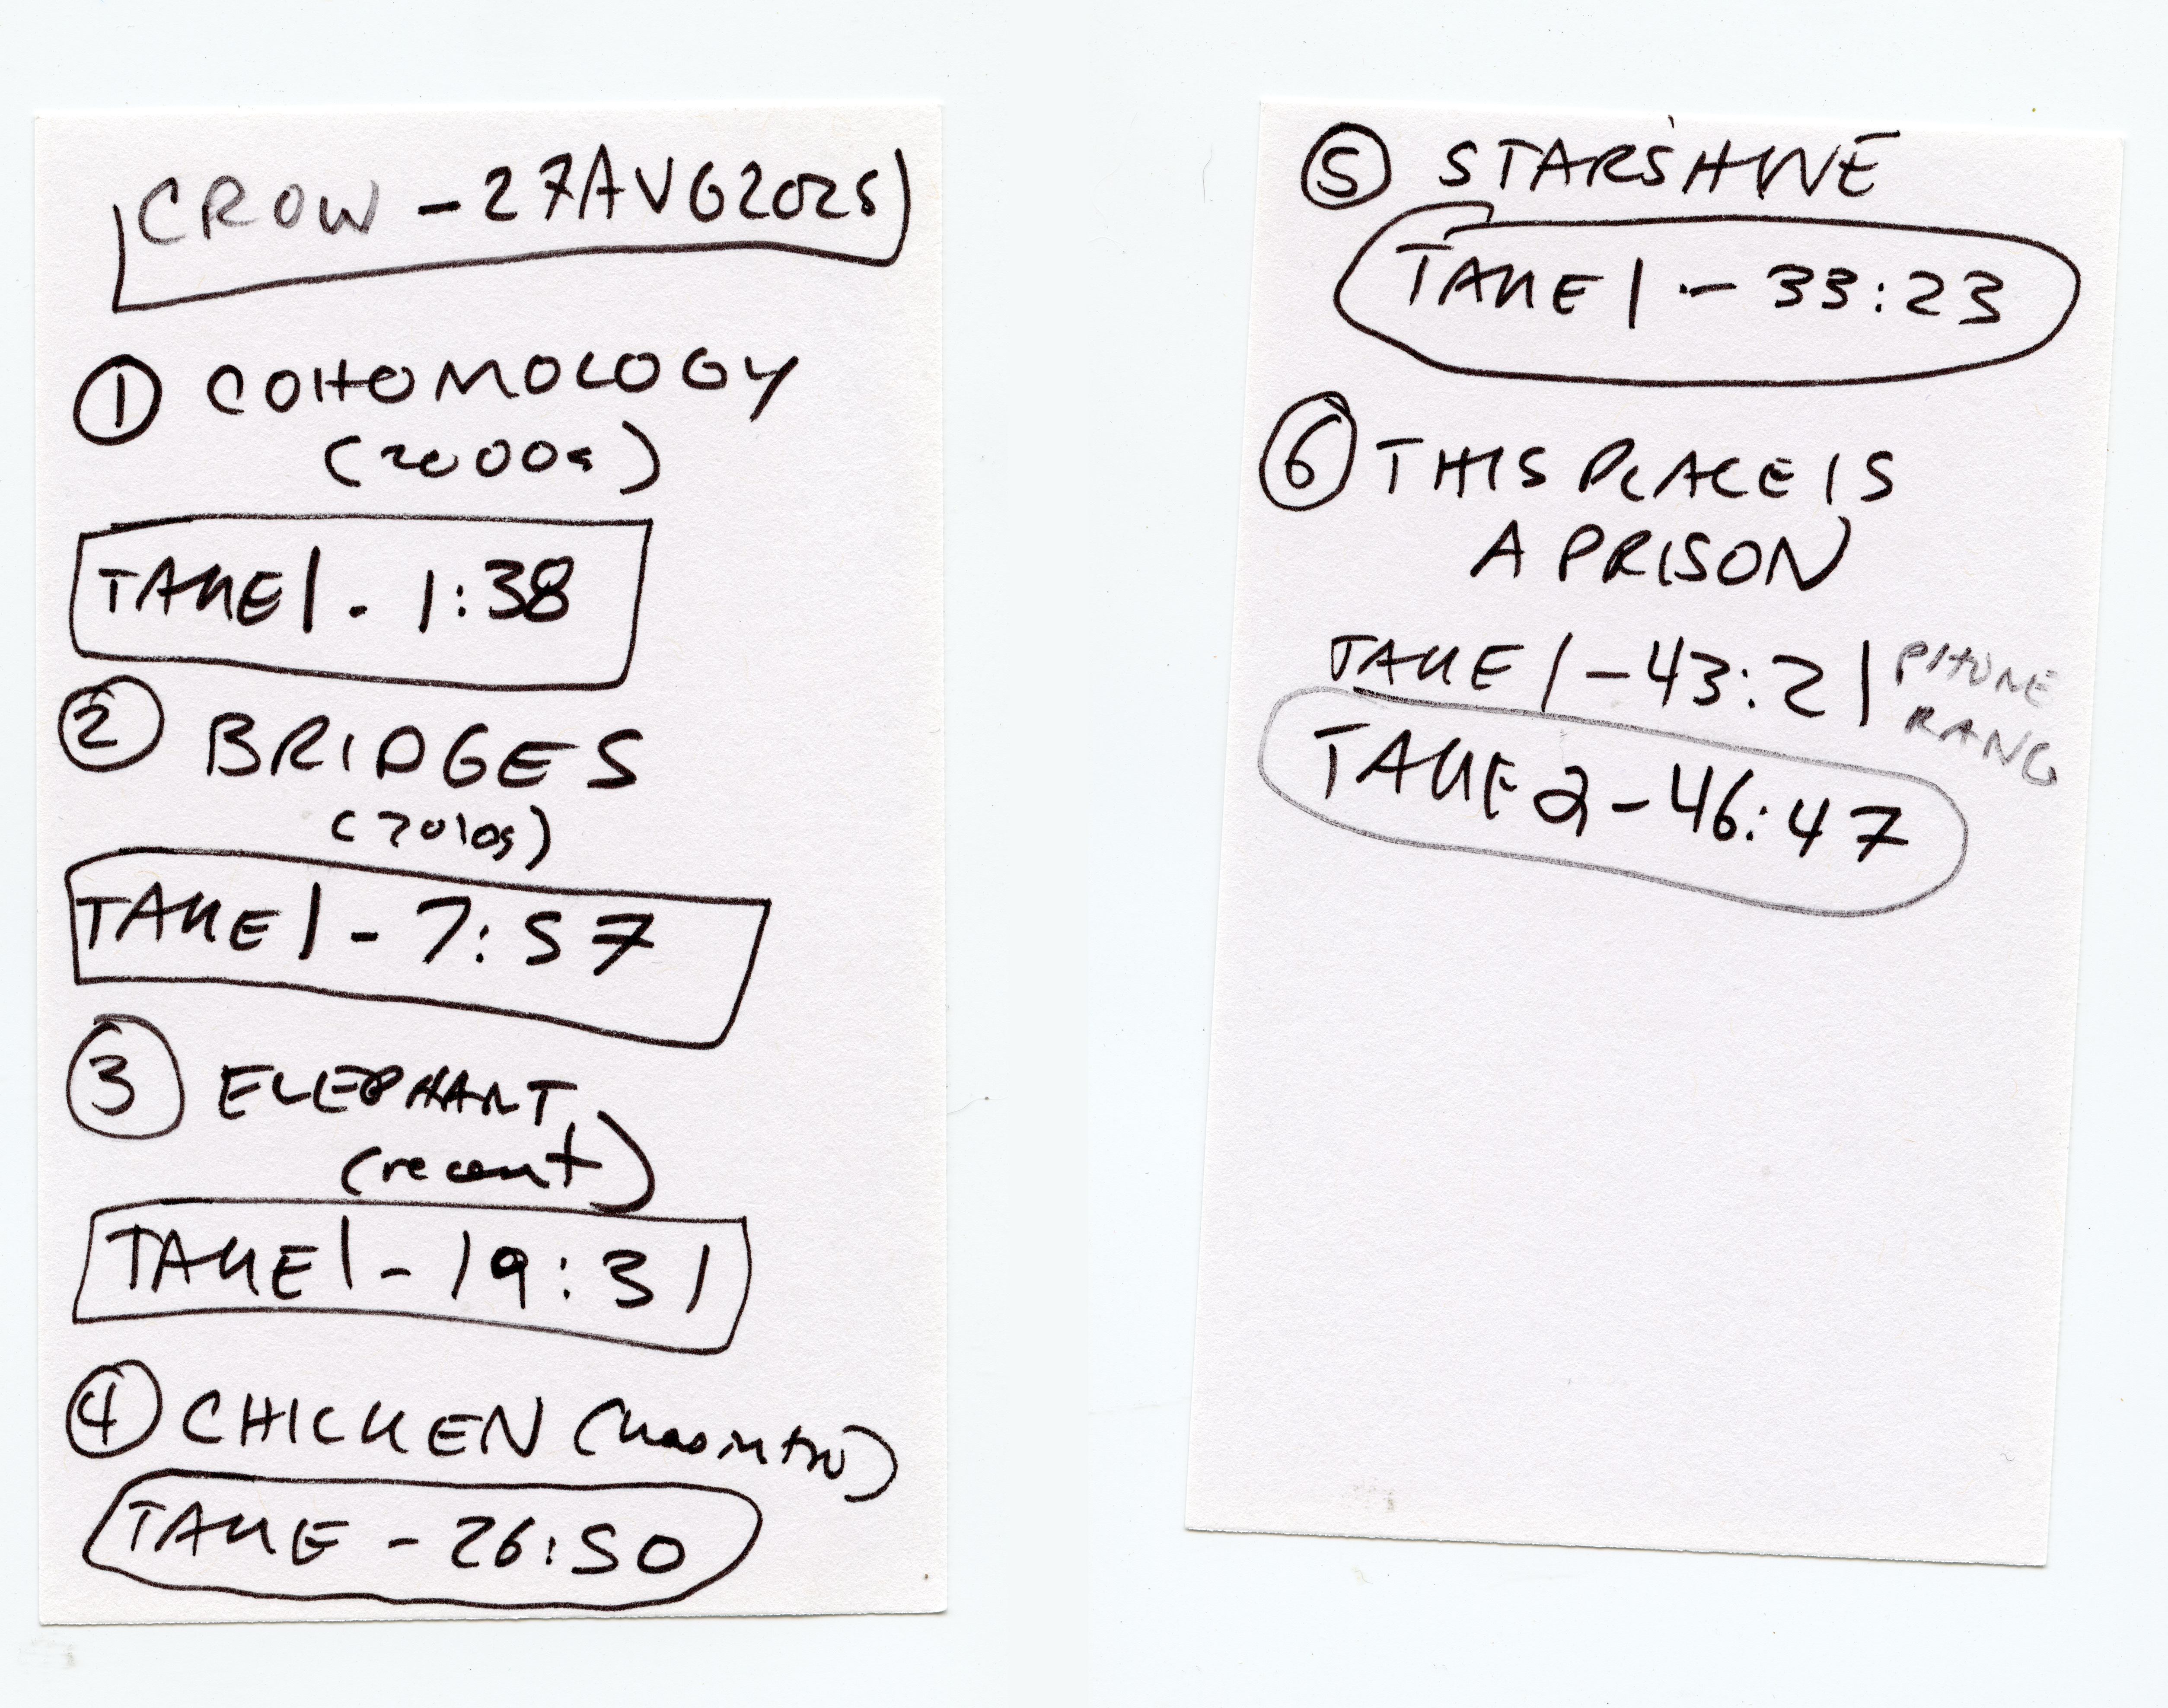 CROW - 27AUG2025
① COHOMOLOGY
(2000s)
TAKE 1 - 1:38
② BRIDGES
(2010s)
TAKE 1 - 7:57
③ ELEPHANT
(recent)
TAKE 1 - 19:31
④ CHICKEN (has intro)
TAKE - 26:50
⑤ STARSHINE
TAKE 1 - 33:23
⑥ THIS PLACE IS
A PRISON
TAKE 1 - 43:21 PHONE
RANG
TAKE 2 - 46:47